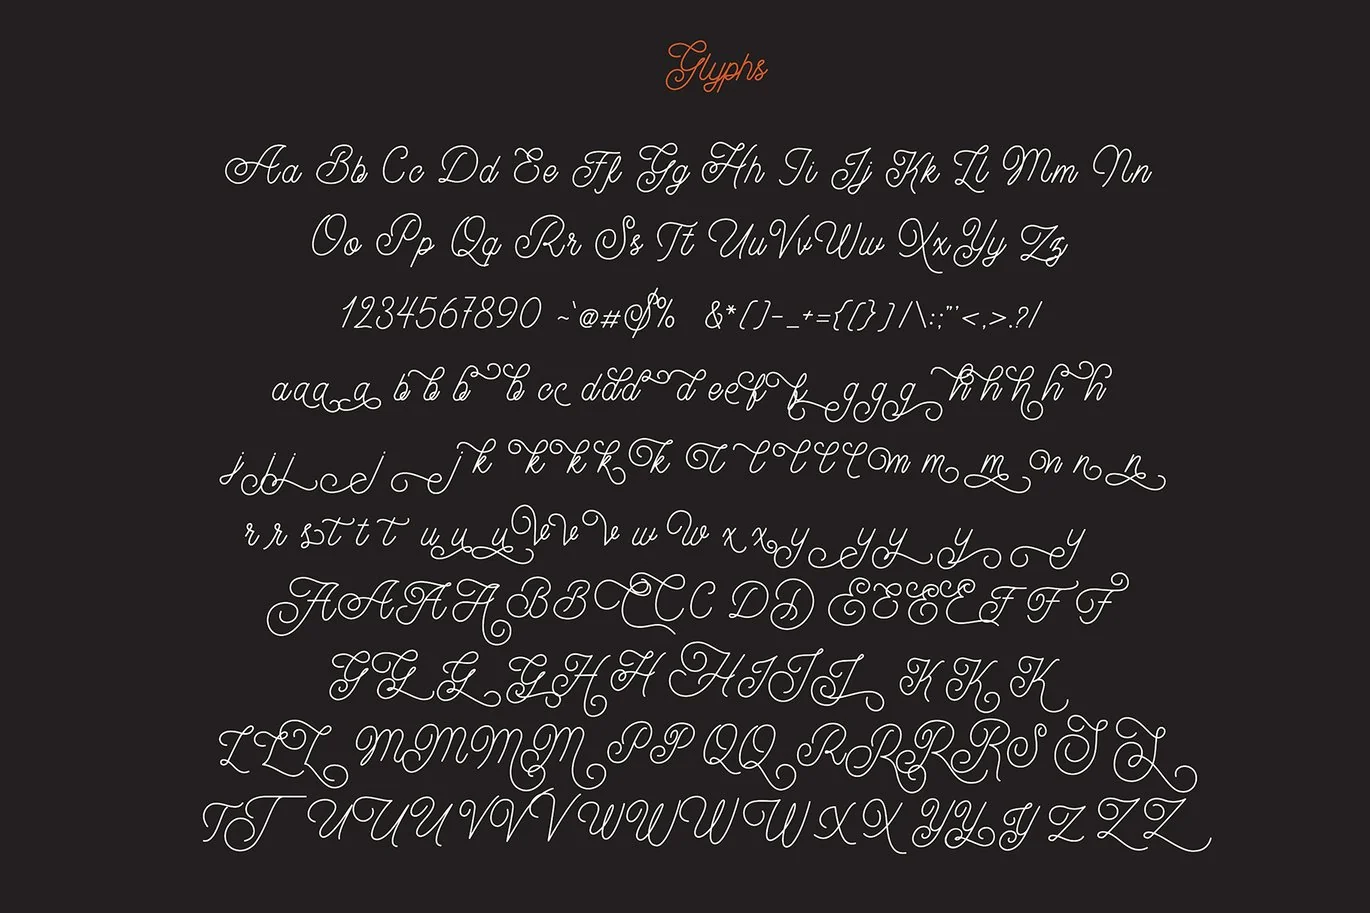 Glyphs
Aa Bb Cc Dd Ee Ff Gg Hh Ii Jj Kk Ll Mm Nn
Oo Pp Qq Rr Ss Tt Uu Vv Ww Xx Yy Zz
1234567890 ~`@#$% &*()-_+={[}]/|\:;"'<,>.?/
a a a a b b b b c c d d d d e e f f g g g h h h h h
j j j j j k k k k k l l l l l m m m n n n
r r s t t t u u u v v v w w x x y y y y y
A A A A B B C C C D D E E E E F F F
G G G G H H H I I I K K K
L L L M M M M P P Q Q R R R R S S S
T T U U U V V V W W W W X X Y Y Y Z Z Z